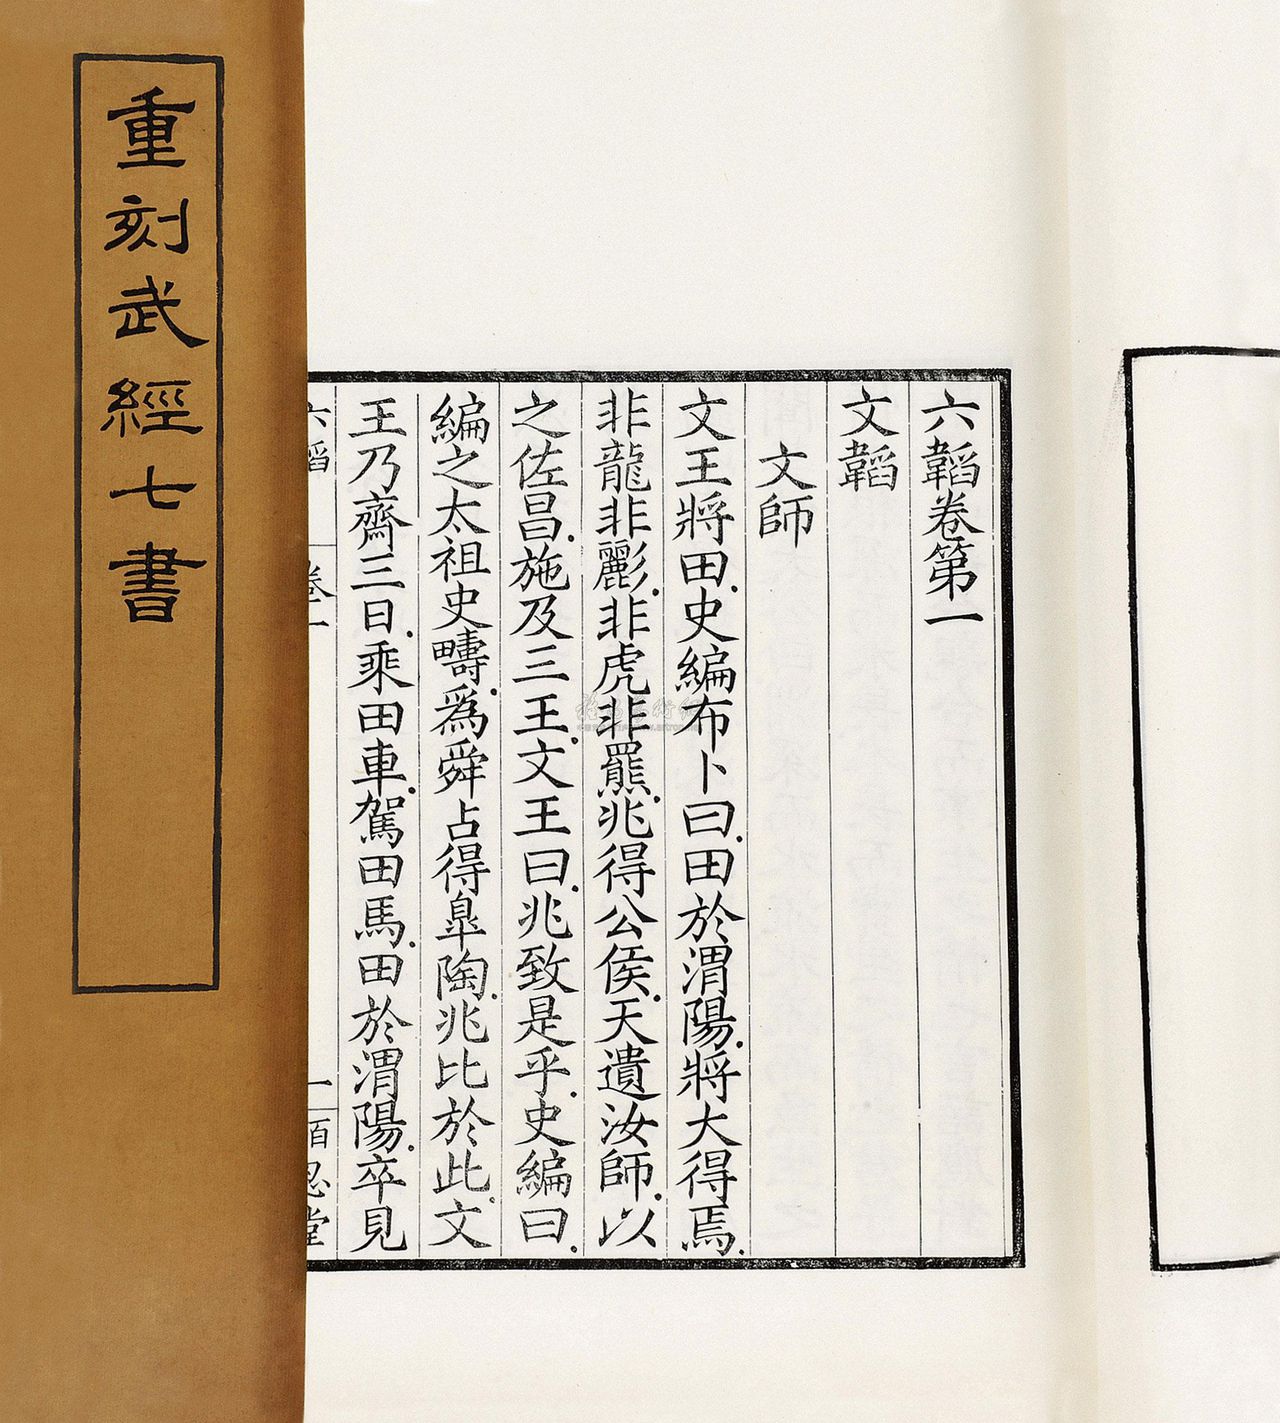 重刻武經七書
六韜卷第一
文韜
文師
文王將田.史編布卜曰.田於渭陽.將大得焉.
非龍非彲.非虎非羆.兆得公侯.天遺汝師.以
之佐昌.施及三王.文王曰.兆致是乎.史編曰.
編之太祖史疇.爲舜占得皐陶.兆比於此.文
王乃齋三日.乘田車.駕田馬.田於渭陽.卒見
六韜 卷一 一 百忍堂